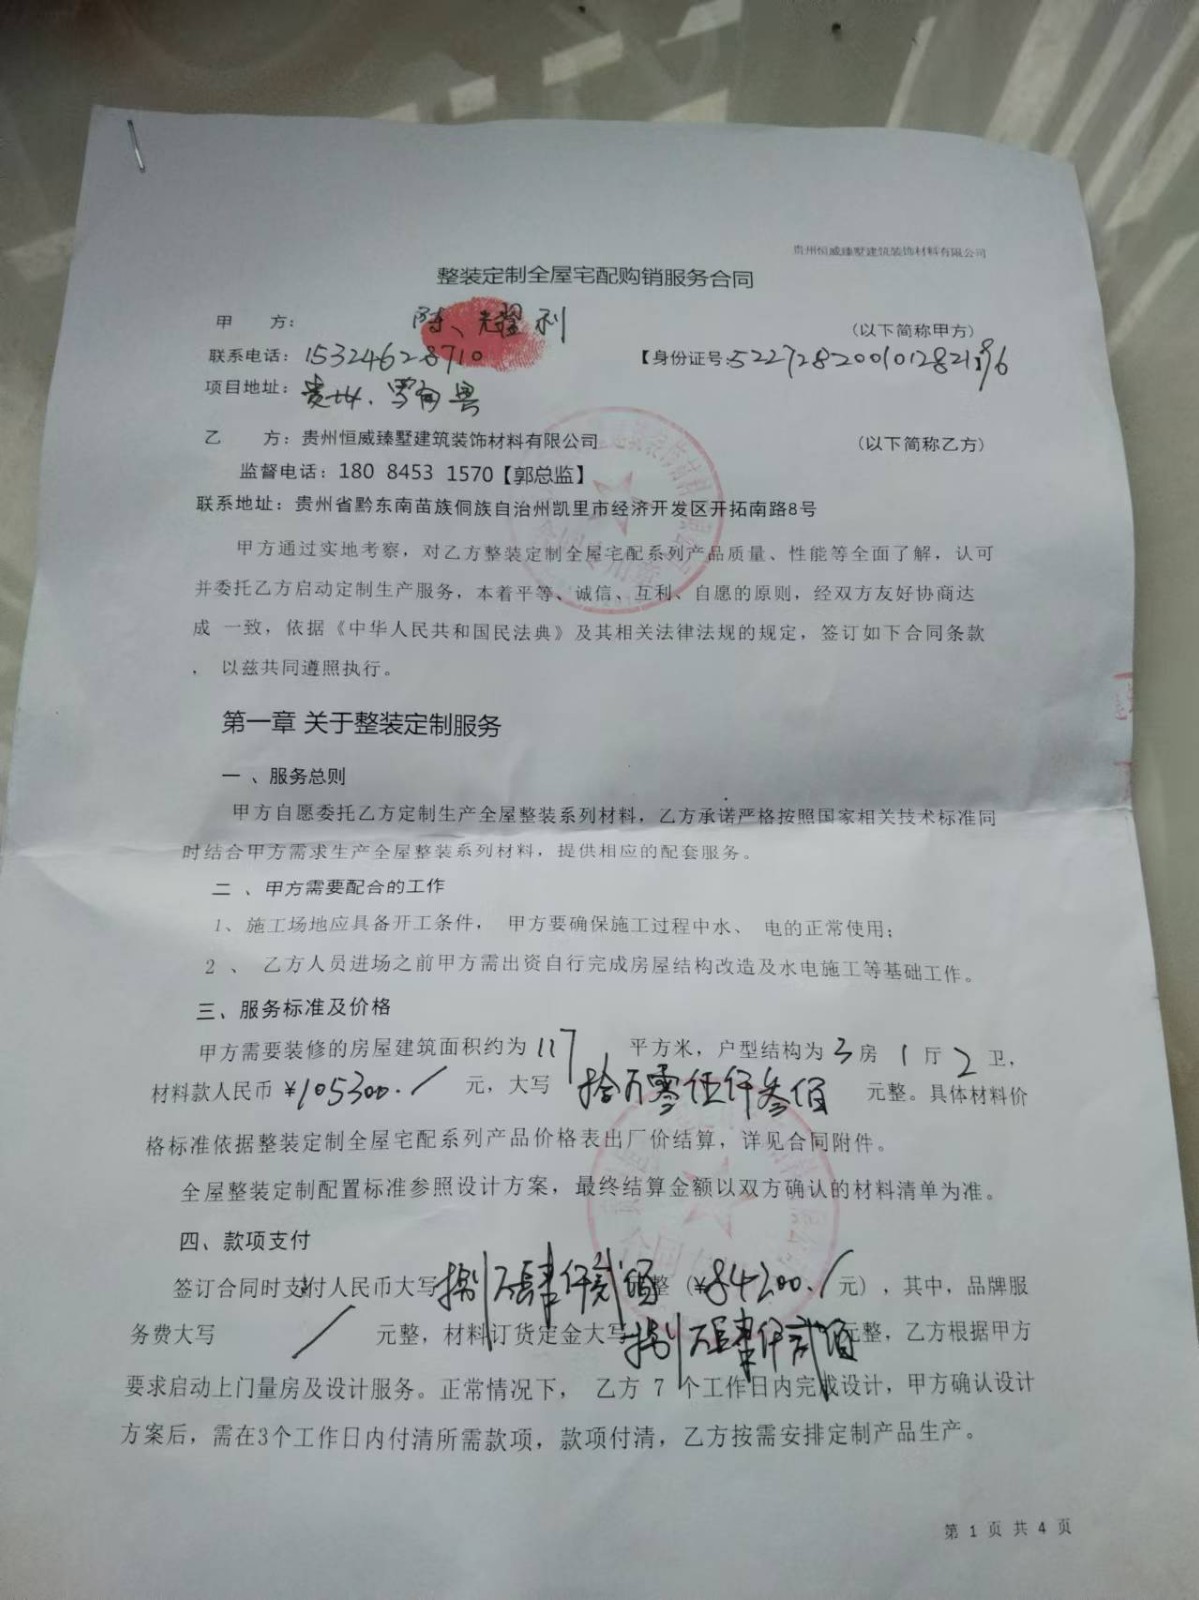 贵州恒威臻墅建筑装饰材料有限公司
整装定制全屋宅配购销服务合同
甲 方： 陈 利 （以下简称甲方）
联系电话：15324628710 【身份证号：
项目地址：贵州．罗甸县
乙 方：贵州恒威臻墅建筑装饰材料有限公司 （以下简称乙方）
监督电话：180 8453 1570【郭总监】
联系地址：贵州省黔东南苗族侗族自治州凯里市经济开发区开拓南路8号
甲方通过实地考察，对乙方整装定制全屋宅配系列产品质量、性能等全面了解，认可
并委托乙方启动定制生产服务，本着平等、诚信、互利、自愿的原则，经双方友好协商达
成 一致，依据《中华人民共和国民法典》及其相关法律法规的规定，签订如下合同条款
，以兹共同遵照执行。
第一章 关于整装定制服务
一 、服务总则
甲方自愿委托乙方定制生产全屋整装系列材料，乙方承诺严格按照国家相关技术标准同
时结合甲方需求生产全屋整装系列材料，提供相应的配套服务。
二 、甲方需要配合的工作
1、施工场地应具备开工条件， 甲方要确保施工过程中水、 电的正常使用；
2 、 乙方人员进场之前甲方需出资自行完成房屋结构改造及水电施工等基础工作。
三、服务标准及价格
甲方需要装修的房屋建筑面积约为 117 平方米，户型结构为 3 房 1 厅 2 卫，
材料款人民币 ¥105300./ 元，大写 拾万零伍仟叁佰 元整。具体材料价
格标准依据整装定制全屋宅配系列产品价格表出厂价结算，详见合同附件。
全屋整装定制配置标准参照设计方案，最终结算金额以双方确认的材料清单为准。
四、款项支付
签订合同时支付人民币大写 捌万肆仟贰佰 整（¥84200./元），其中，品牌服
务费大写 / 元整，材料订货定金大写 捌万肆仟贰佰 元整，乙方根据甲方
要求启动上门量房及设计服务。正常情况下， 乙方 7 个工作日内完成设计，甲方确认设计
方案后，需在3个工作日内付清所需款项，款项付清，乙方按需安排定制产品生产。
第 1 页 共 4 页